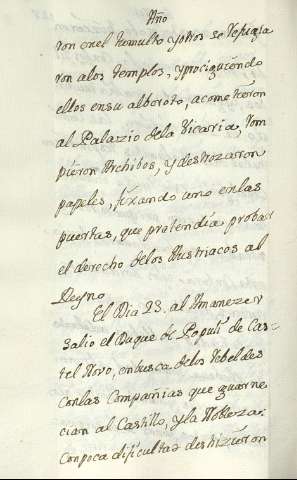 Año
ron en el tumulto y otros se refugia
ron a los templos, y prociguiendo
ellos en su alboroto, acometieron
al Palazio dela Vicaria, rom
pieron Archibos, y destrozaron
papeles, fixando uno en las
puertas, que pretendia probar
el derecho delos Austriacos al
Reyno
El Dia 23. al Amanezer
salio el Duque de Populi de Cas-
tel Novo, en busca delos rebeldes
con las Compañias que guarne
cian al Castillo, y la Nobleza:
con poca dificultad deshizieron